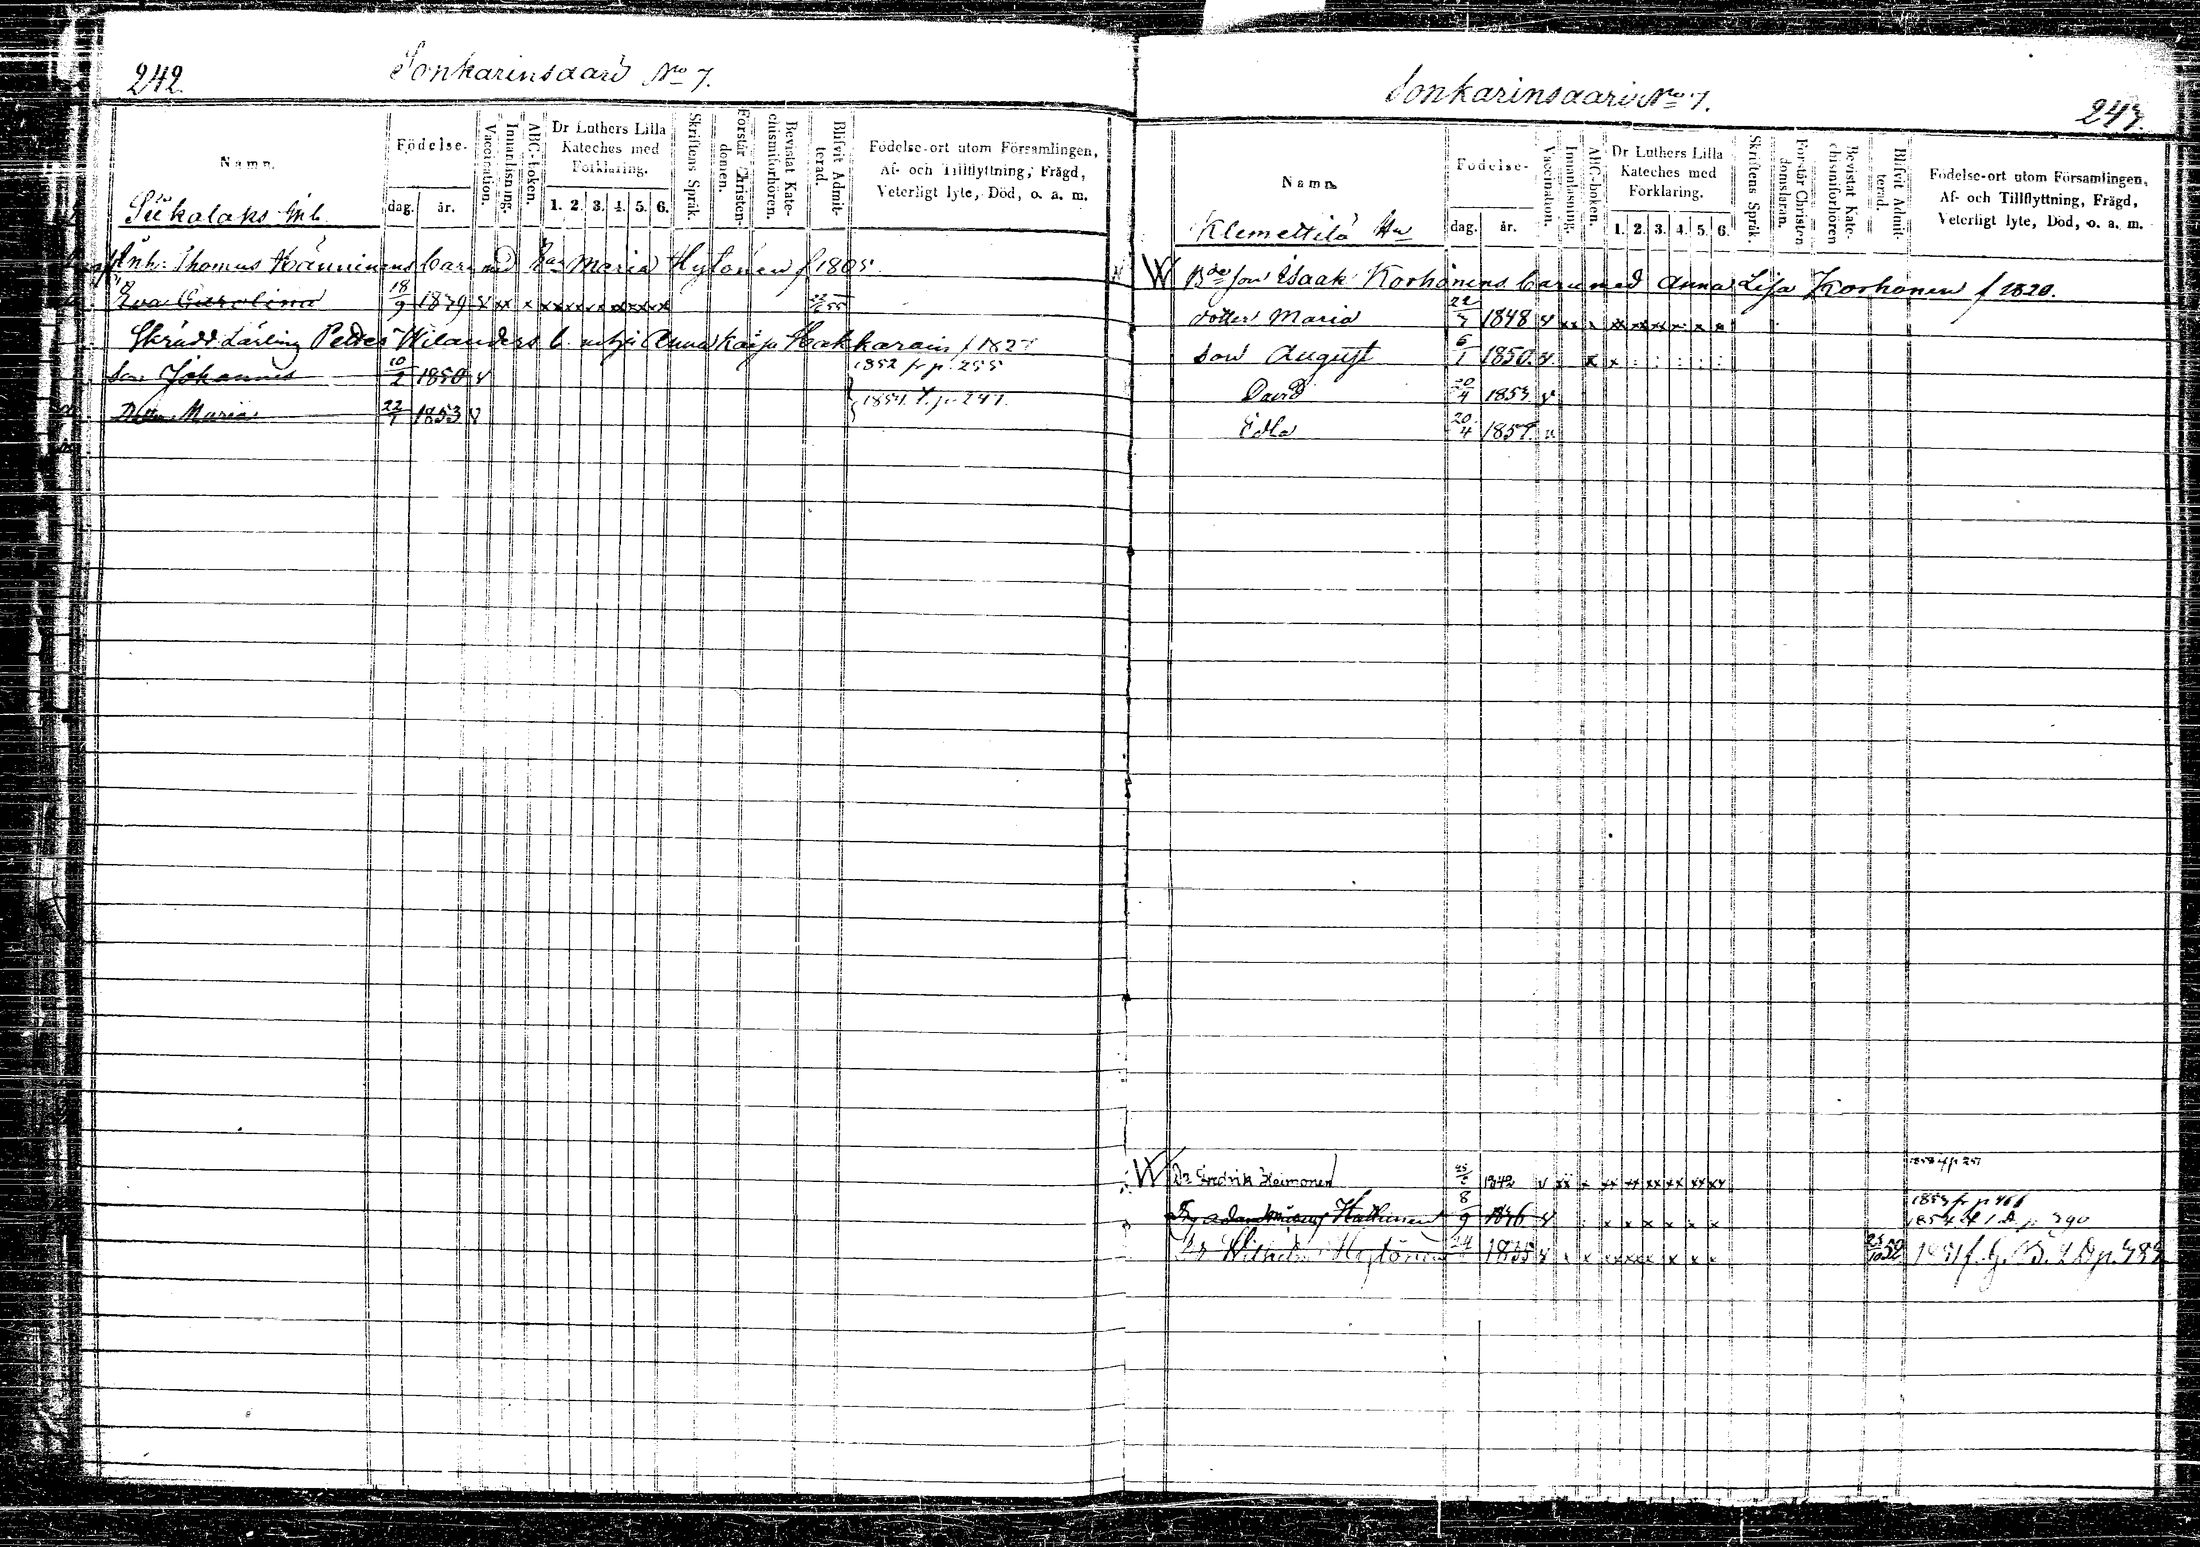 242.
Sonkarinsaari No 7.
Namn.
Födelse-
dag. år.
Vaccination.
Innanläsning.
ABC-boken.
Dr Luthers Lilla Kateches med Förklaring.
1. 2. 3. 4. 5. 6.
Skriftens Språk.
Förstår Christendomen.
Bevistat Katechismiförhören.
Blifvit Admitterad.
Födelse-ort utom Församlingen,
Af- och Tillflyttning, Frägd,
Veterligt lyte, Död, o. a. m.
Siikalaks
Inh: Thomas Känninens barn med Maria Hytönen f 1805.
Eva Carolina 18/9 1839 v xx x
Skrädd. Lärling Petter Wilanders b. Anna Kaisa Hakkarain f 1827
Son Johannes 10/2 1850 v 1852 fr p. 255
Dotter Maria 22/7 1853 v 1854 t. p. 247.
Sonkarinsaari No 7.
243.
Namn.
Födelse-
dag. år.
Vaccination.
Innanläsning.
ABC-boken.
Dr Luthers Lilla Kateches med Förklaring.
1. 2. 3. 4. 5. 6.
Skriftens Språk.
Förstår Christendomsläran.
Bevistat Katechismiförhören
Blifvit Admitterad.
Födelse-ort utom Församlingen,
Af- och Tillflyttning, Frägd,
Veterligt lyte, Död, o. a. m.
Klemettilä
W Bde son Isaak Korhonens barn med Anna Lisa Korhonen f 1820.
dotter Maria 22/7 1848 v xx x xx xx xx x x x
Son August 6/1 1850. v. x x
David 20/4 1853 v
Edla 20/4 1857. v
W Dr Fredrik Heimonen 25/2 1842 v xx x xx xx xx xx xx xx
Hakkinen 8/9 1836 v x x x x x x 1853 fr p 466
Dr Wilhelm Hytönen 1835 v x x 25/10 52